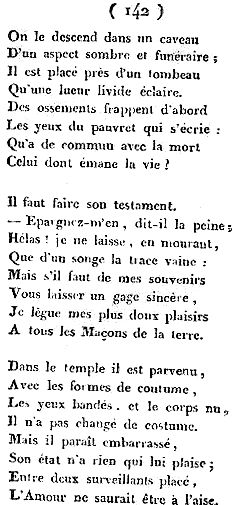 ( 142 )
On le descend dans un caveau
D'un aspect sombre et funéraire ;
Il est placé près d'un tombeau
Qu'une lueur livide éclaire.
Des ossements frappent d'abord
Les yeux du pauvret qui s'écrie :
Qu'a de commun avec la mort
Celui dont émane la vie ?
Il faut faire son testament.
— Epargnez-m'en, dit-il la peine ;
Hélas ! je ne laisse, en mourant,
Que d'un songe la trace vaine :
Mais s'il faut de mes souvenirs
Vous laisser un gage sincère,
Je lègue mes plus doux plaisirs
A tous les Maçons de la terre.
Dans le temple il est parvenu,
Avec les formes de coutume,
Les yeux bandés. et le corps nu,
Il n'a pas changé de costume.
Mais il paraît embarrassé,
Son état n'a rien qui lui plaise ;
Entre deux surveillants placé,
L'Amour ne saurait être à l'aise.